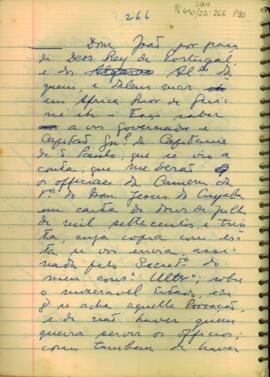 266
266 P20
— Dom João por graça
de Deos Rey de Portugal
e dos Al.es da
quem, e dalem mar
em Africa Snor de Gui-
né etc - Faço saber
a vos governador e
Capitão Gn.l da Capitania
de S Paulo, que se vio a
conta, que me derão
os officiaes da Camera da
V.a do Bom Jesus do Cuyaba
em carta de dous de julho
de mil settecentos, e trin-
ta, cuja copia com es-
ta se vos envia, asi-
nada pelo Secret.o do
meu cons.o Ultr.o, sobre
o mizeravel Estado, em
q se acha aquella Povoação,
e de não haver quem
queira servir os officios;
como tambem de haver